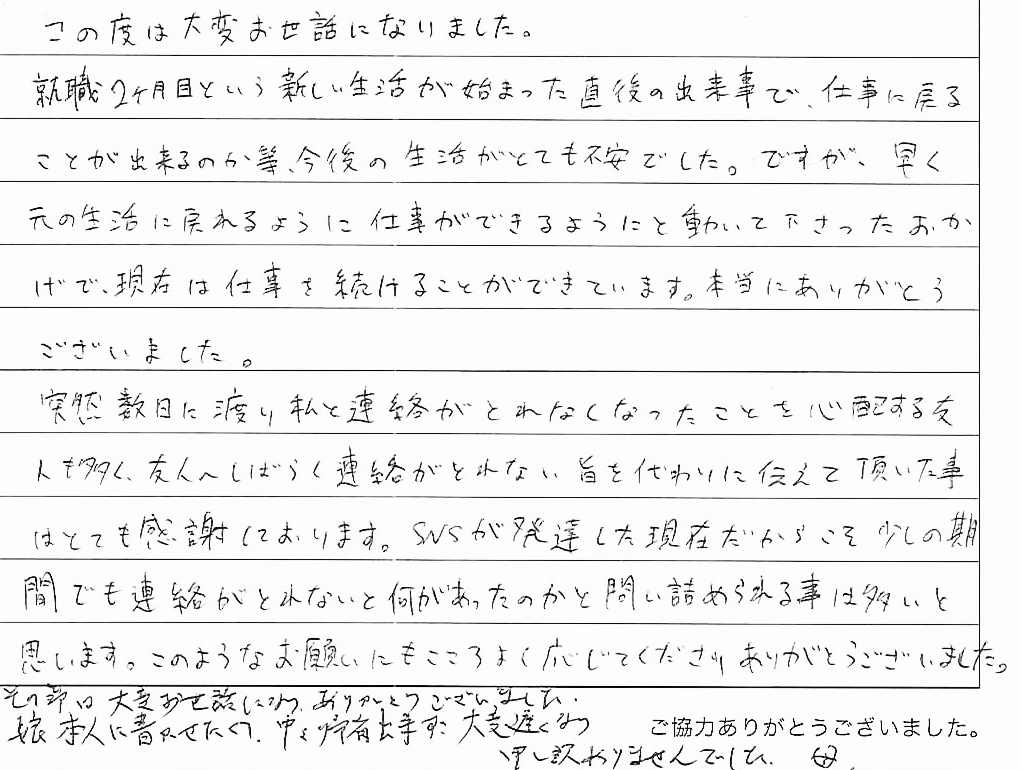 この度は大変お世話になりました。
就職2ヶ月目という新しい生活が始まった直後の出来事で、仕事に戻る
ことが出来るのか等、今後の生活がとても不安でした。ですが、早く
元の生活に戻れるように仕事ができるようにと動いて下さったおか
げで、現在は仕事を続けることができています。本当にありがとう
ございました。
突然数日に渡り私と連絡がとれなくなったことを心配する友
人も多く、友人へしばらく連絡がとれない旨を代わりに伝えて頂いた事
はとても感謝しております。SNSが発達した現在だからこそ少しの期
間でも連絡がとれないと何があったのかと問い詰められる事は多いと
思います。このようなお願いにもこころよく応じてくださりありがとうございました。
その節は大変お世話になり、ありがとうございました。
娘本人に書かせたくて、中々帰省出来ずに大変遅くなり
ご協力ありがとうございました。
申し訳ありませんでした。 母